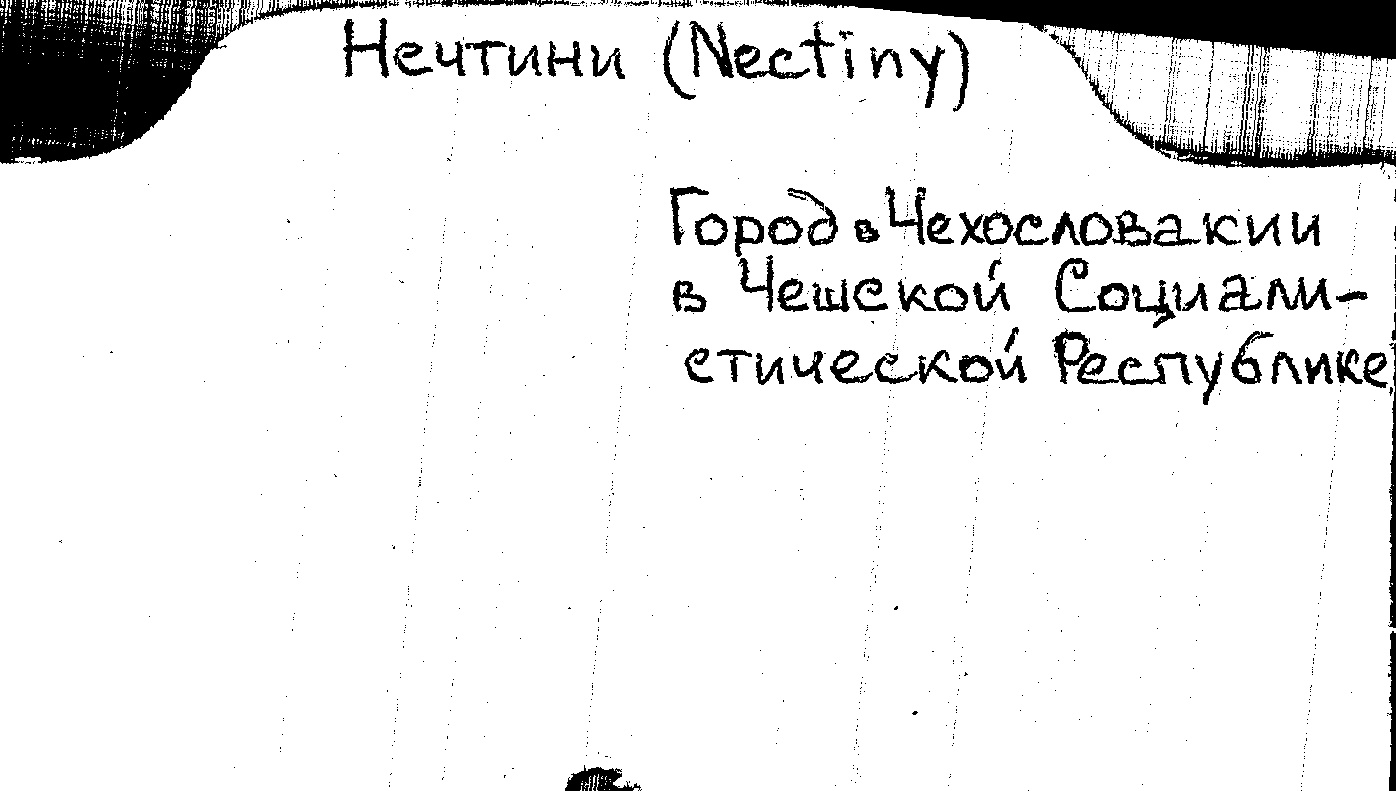 Нечтини (Nectiny)
Город в Чехословакии
в Чешской Социали-
стической Республике